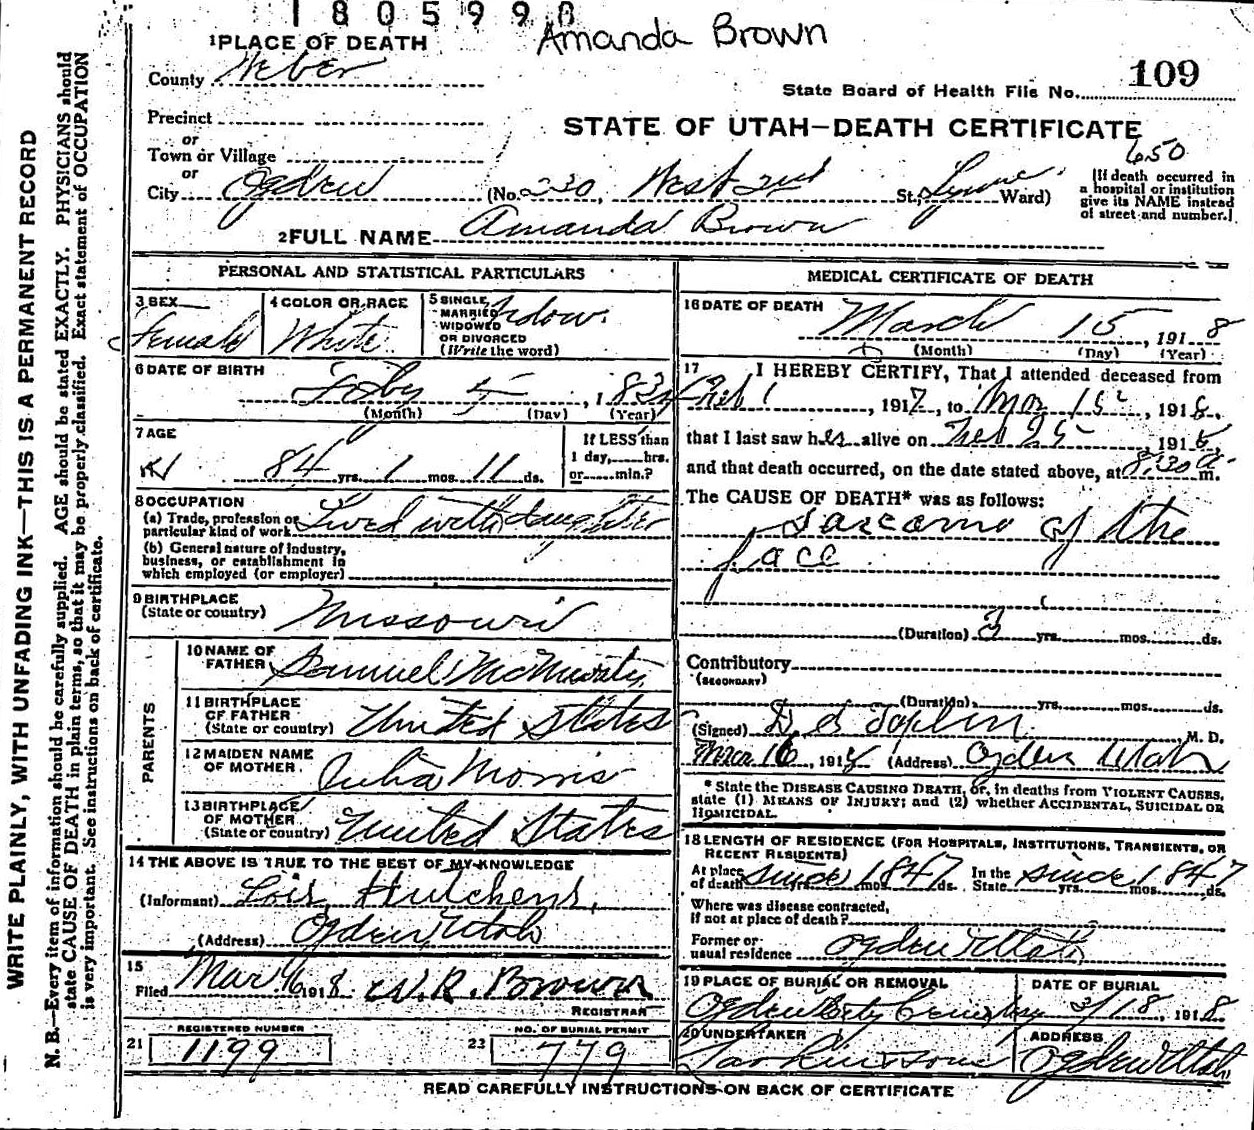 1805990
Amanda Brown
1 PLACE OF DEATH
County Weber
State Board of Health File No. 109
Precinct
or
Town or Village
or
STATE OF UTAH—DEATH CERTIFICATE
650
City Ogden (No. 230, West 2nd St., Lynne Ward)
[If death occurred in
a hospital or institution
give its NAME instead
of street and number.]
2 FULL NAME Amanda Brown
PERSONAL AND STATISTICAL PARTICULARS
3 SEX Female
4 COLOR OR RACE White
5 SINGLE,
MARRIED,
WIDOWED
OR DIVORCED
(Write the word)
6 DATE OF BIRTH
5, 183
(Month) (Day) (Year)
7 AGE
84 yrs. 1 mos. 11 ds.
If LESS than
1 day, hrs.
or min.?
8 OCCUPATION
(a) Trade, profession or
particular kind of work Lived with daughter
(b) General nature of Industry,
business, or establishment in
which employed (or employer)
9 BIRTHPLACE
(State or country) Missouri
PARENTS
10 NAME OF
FATHER Samuel
11 BIRTHPLACE
OF FATHER
(State or country) United States
12 MAIDEN NAME
OF MOTHER Julia Morris
13 BIRTHPLACE
OF MOTHER
(State or country) United States
14 THE ABOVE IS TRUE TO THE BEST OF MY KNOWLEDGE
(Informant) Lois Hutchens,
(Address) Ogden, Utah
15
Filed Mar 16 1918 W. R. Brown
REGISTRAR
REGISTERED NUMBER
21 1199
NO. OF BURIAL PERMIT
22 779
MEDICAL CERTIFICATE OF DEATH
16 DATE OF DEATH
March 15, 1918
(Month) (Day) (Year)
17 I HEREBY CERTIFY, That I attended deceased from
Feb 1, 1917, to Mar 15, 1918,
that I last saw her alive on Feb 25, 191
and that death occurred, on the date stated above, at 8:30 a. m.
The CAUSE OF DEATH* was as follows:
Sarcoma of the
face
(Duration) 3 yrs. mos. ds.
Contributory
(SECONDARY)
(Duration) yrs. mos. ds.
(Signed) M. D.
Mar 16, 1918 (Address) Ogden Utah
* State the DISEASE CAUSING DEATH, or, in deaths from VIOLENT CAUSES,
state (1) MEANS OF INJURY; and (2) whether ACCIDENTAL, SUICIDAL OR
HOMICIDAL.
18 LENGTH OF RESIDENCE (FOR HOSPITALS, INSTITUTIONS, TRANSIENTS, OR
RECENT RESIDENTS)
At place
of death since 1847 mos. ds. In the
State since 1847 yrs. mos. ds.
Where was disease contracted,
if not at place of death?
Former or
usual residence Ogden Utah
19 PLACE OF BURIAL OR REMOVAL
Ogden City Cemetery
DATE OF BURIAL
3/18, 1918
20 UNDERTAKER
ADDRESS
Ogden Utah
READ CAREFULLY INSTRUCTIONS ON BACK OF CERTIFICATE
WRITE PLAINLY, WITH UNFADING INK—THIS IS A PERMANENT RECORD
N. B.—Every item of information should be carefully supplied. AGE should be stated EXACTLY. PHYSICIANS should
state CAUSE OF DEATH in plain terms, so that it may be properly classified. Exact statement of OCCUPATION
is very important. See instructions on back of certificate.